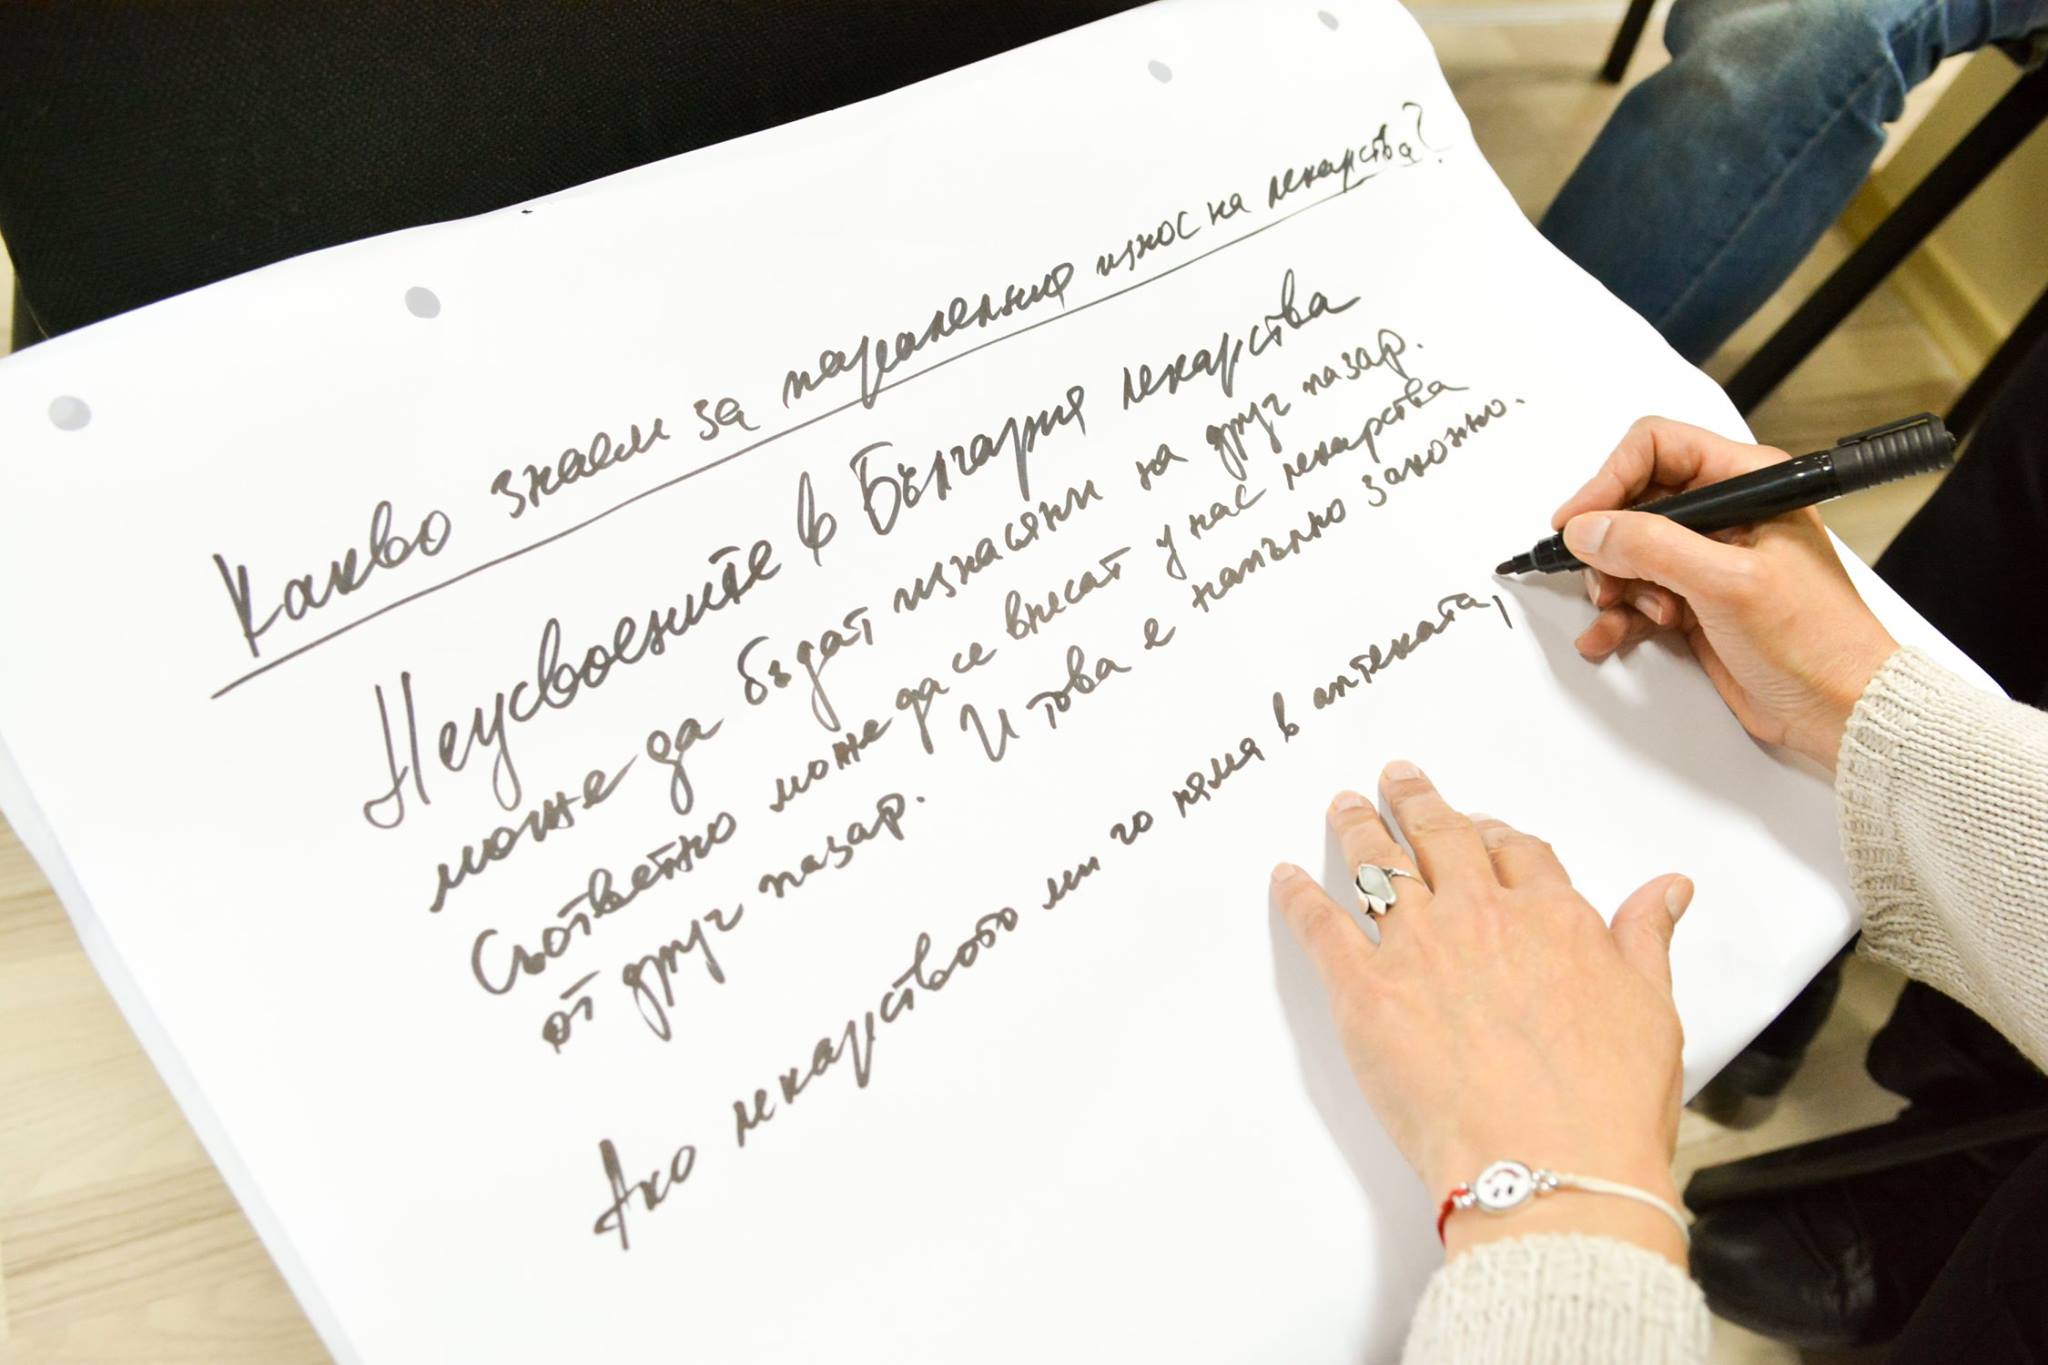 Какво знаем за паралелния износ на лекарства?
Неусвоените в България лекарства
може да бъдат изнасяни на друг пазар.
Съответно може да се внесат у нас лекарства
от друг пазар. И това е напълно законно.
Ако лекарството ми го няма в аптеката,